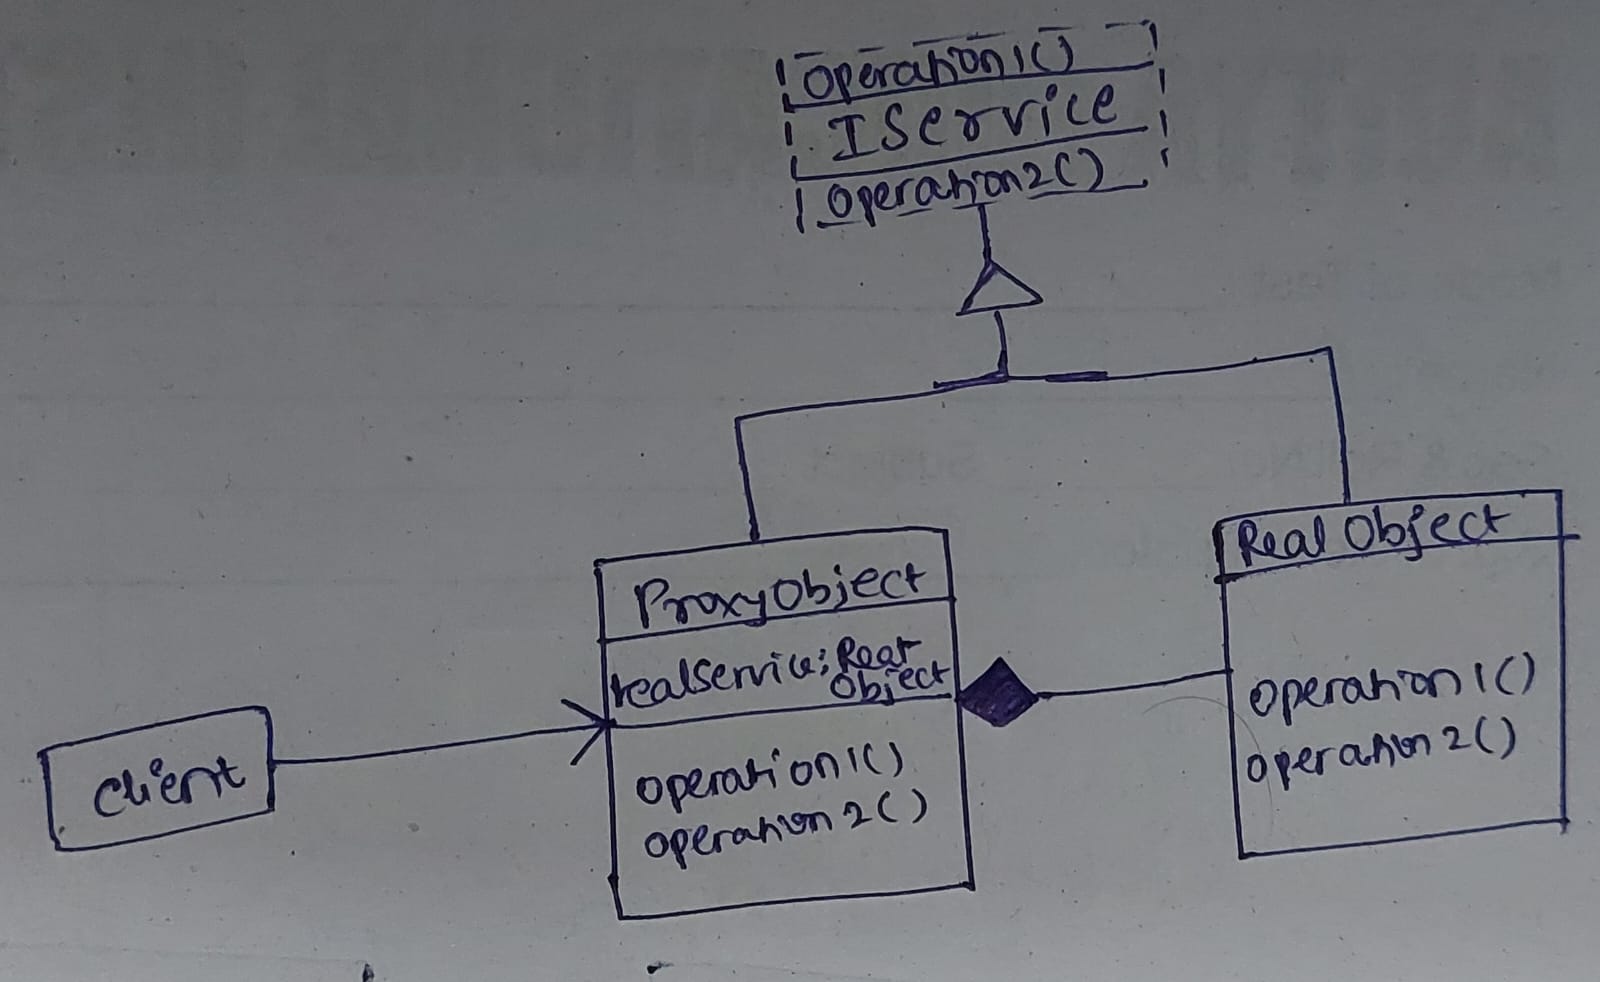 operation1()
IService
operation2()
ProxyObject
realservice: Real
Object
operation1()
operation2()
Real Object
operation1()
operation2()
client